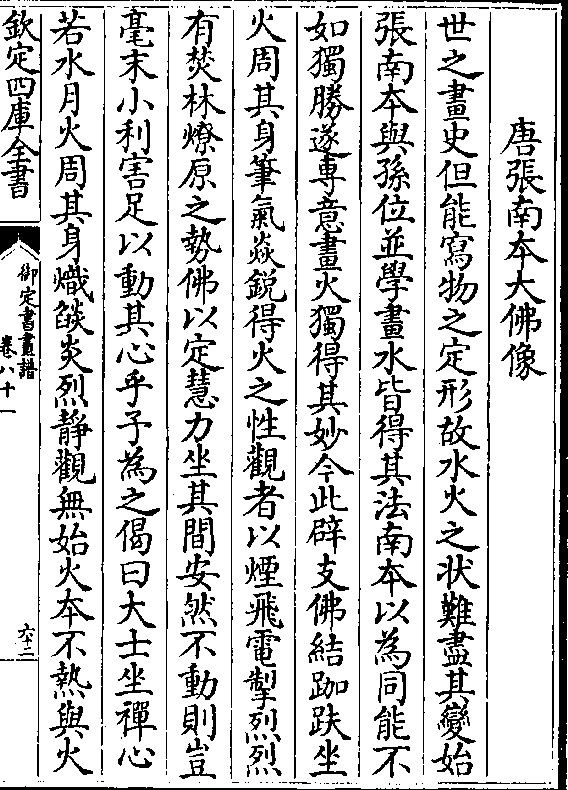 唐張南本大佛像
世之畫史但能寫物之定形故水火之状難盡其變始
張南本與孫位並學畫水皆得其法南本以為同能不
如獨勝遂專意畫火獨得其妙今此辟支佛結跏趺坐
火周其身筆氣焱銳得火之性觀者以煙飛電掣烈烈
有焚林燎原之勢佛以定慧力坐其間安然不動則豈
毫末小利害足以動其心乎子為之偈曰大士坐禪心
若水月火周其身熾燄炎烈靜觀無始火本不熱與火
欽定四庫全書
御定書畫譜
卷八十一
六十二